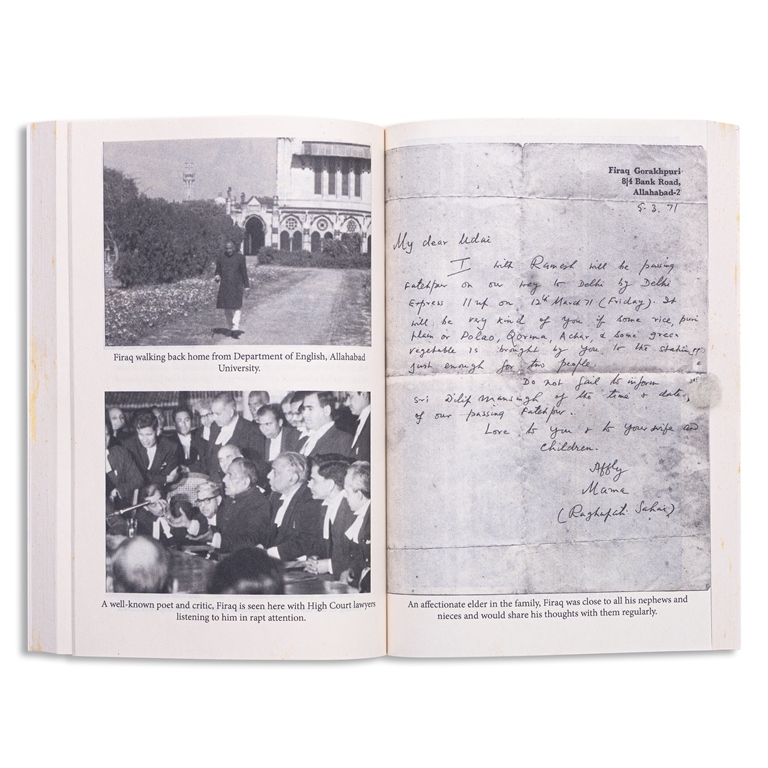 Firaq walking back home from Department of English, Allahabad
University.
A well-known poet and critic, Firaq is seen here with High Court lawyers
listening to him in rapt attention.
Firaq Gorakhpuri
8/4 Bank Road,
Allahabad-2
5.3.71
My dear Udai
I with Ramesh will be passing
Fatehpur on our way to Delhi by Delhi
Express 11 up on 12th March 71 (Friday). It
will be very kind of you if some rice, puri
plain or Polao, Qorma, Achar, & some green
vegetable is brought by you to the station
just enough for two people.
Do not fail to inform
Sri Dilip Mansingh of the time & date
of our passing Fatehpur.
Love to you & to your wife and
children.
Affly
Mama
(Raghupati Sahai)
An affectionate elder in the family, Firaq was close to all his nephews and
nieces and would share his thoughts with them regularly.